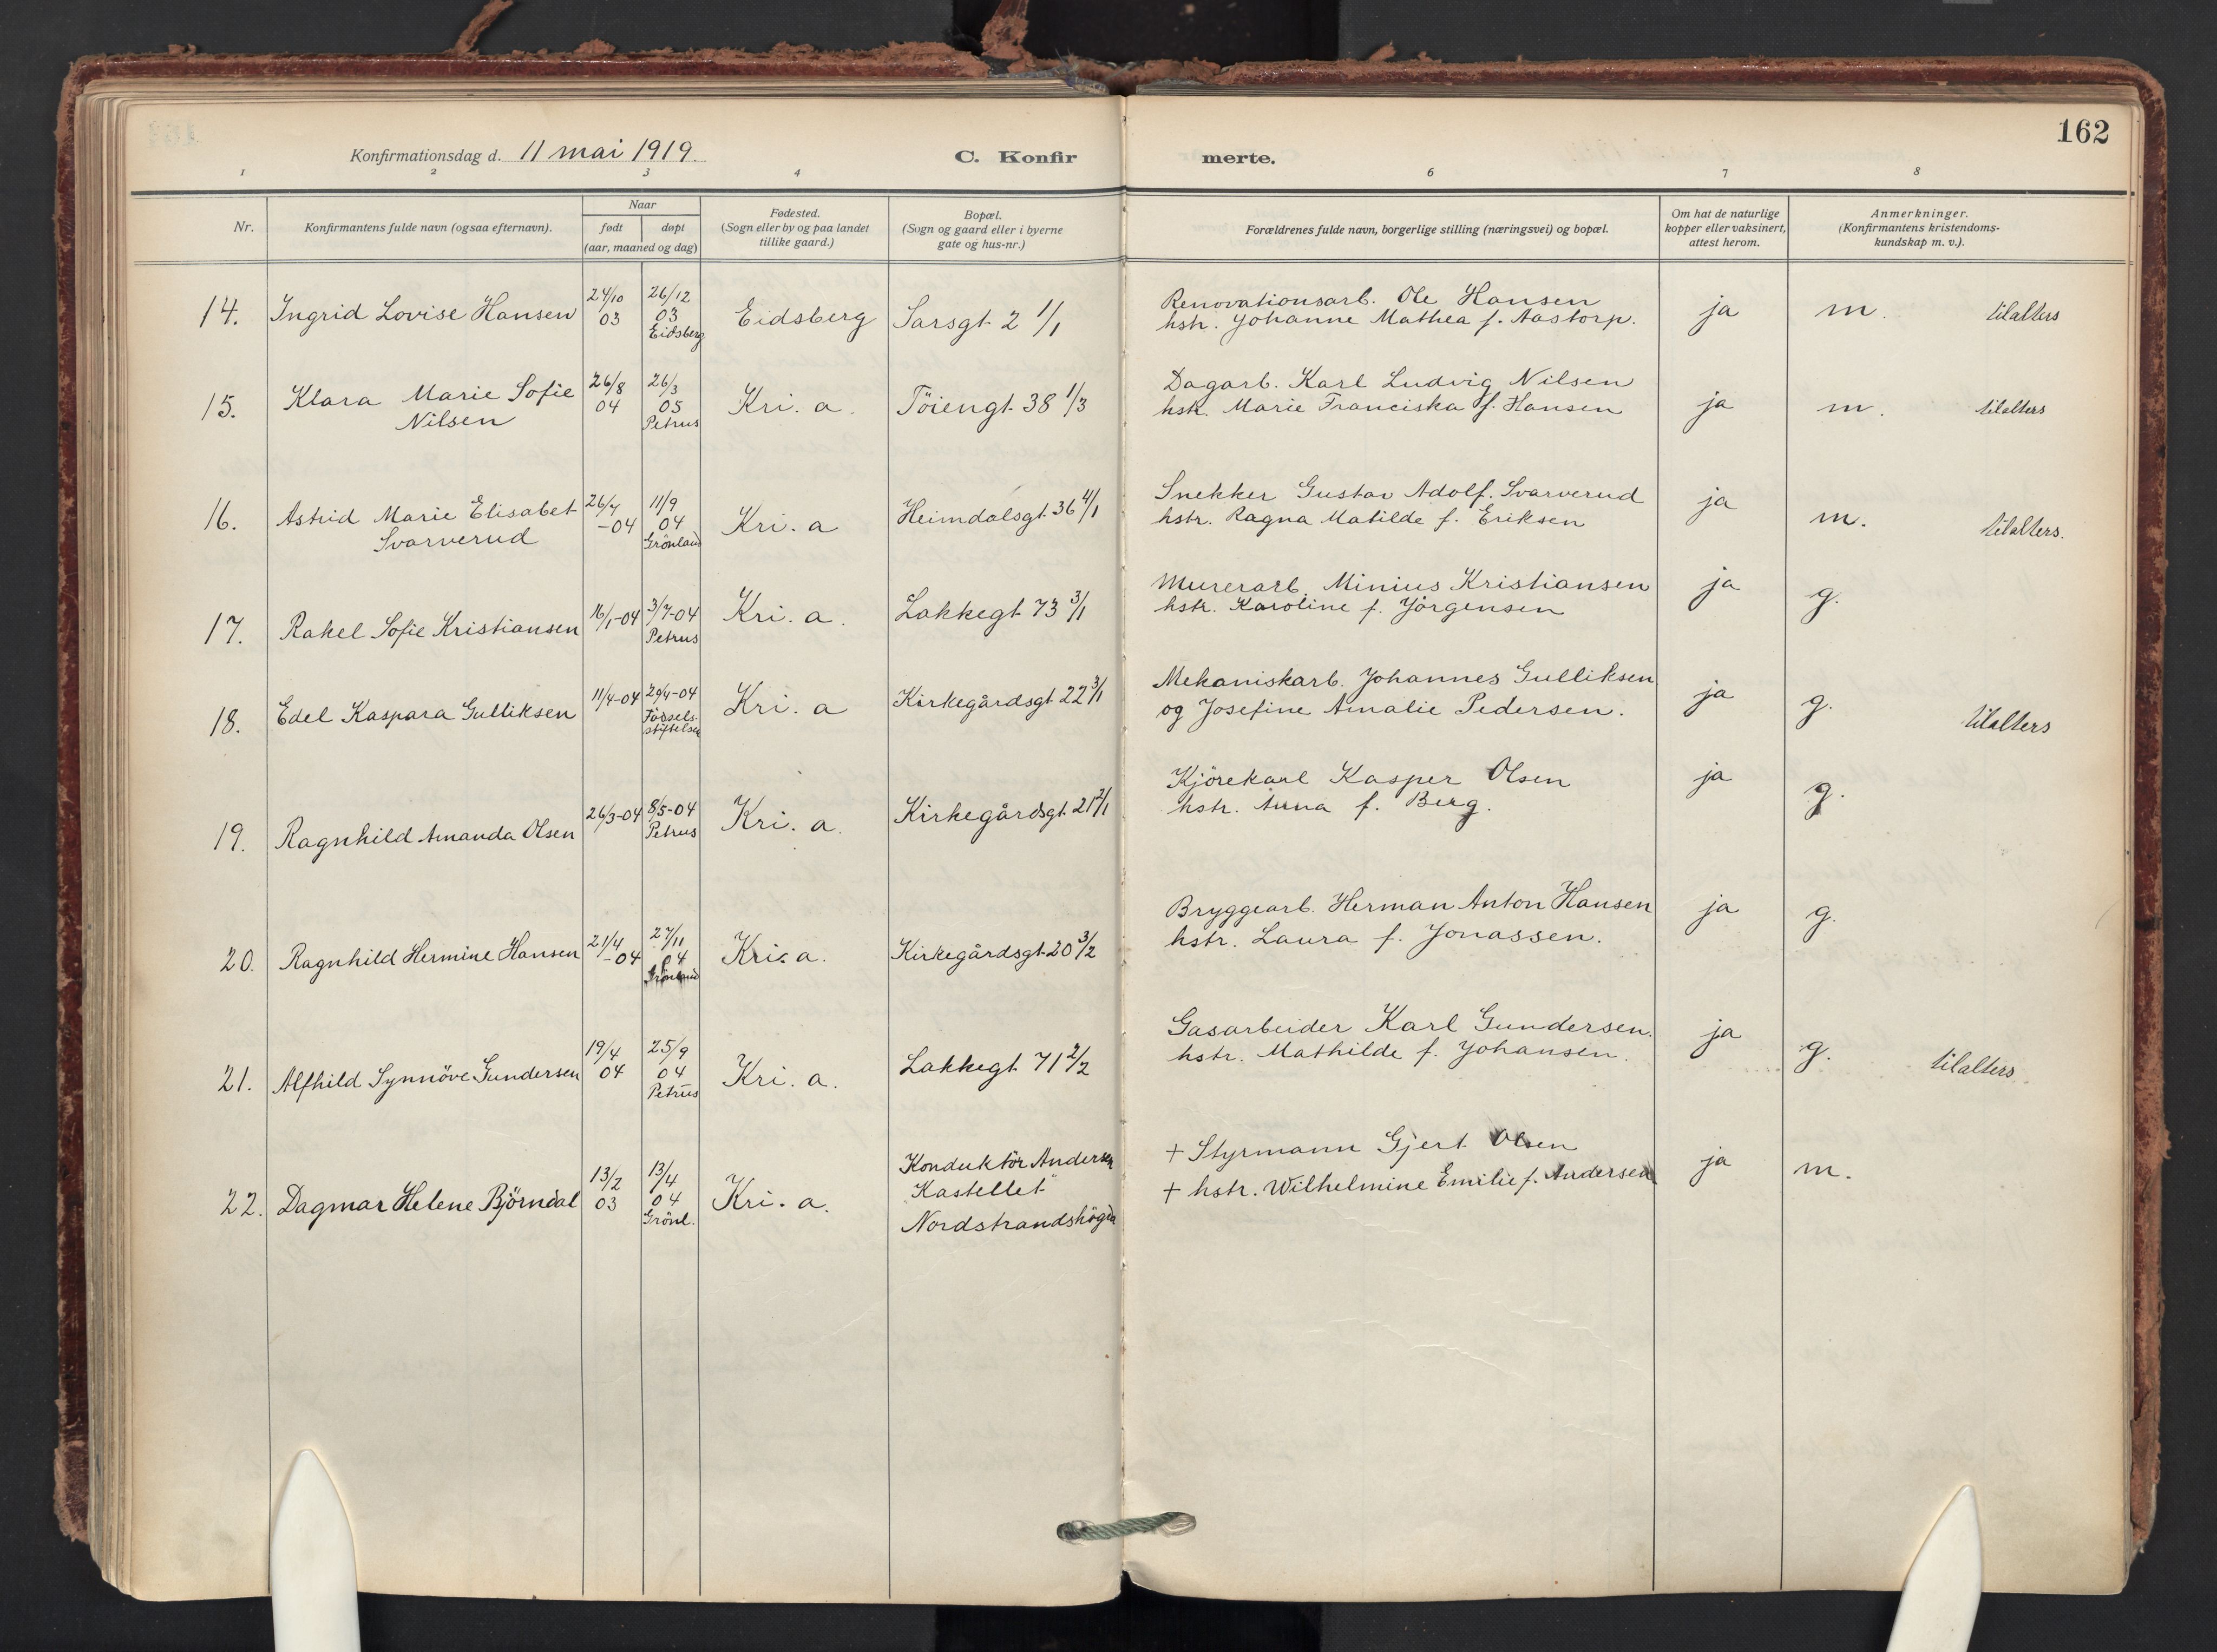 162
Konfirmationsdag d. 11 mai 1919.
C. Konfir merte.
1 2 3 4 6 7 8
Nr.
Konfirmantens fulde navn (ogsaa efternavn).
Naar
født døpt
(aar, maaned og dag)
Fødested.
(Sogn eller by og paa landet
tillike gaard.)
Bopæl.
(Sogn og gaard eller i byerne
gate og hus-nr.)
Forældrenes fulde navn, borgerlige stilling (næringsvei) og bopæl.
Om hat de naturlige
kopper eller vaksinert,
attest herom.
Anmerkninger.
(Konfirmantens kristendoms-
kundskap m. v.).
14. Ingrid Lovise Hansen
24/10
03
26/12
03
Eidsberg
Eidsberg
Sarsgt. 2 1/1
Renovationsarb. Ole Hansen
hstr. Johanne Mathea f. Aastorp.
ja
m.
tilalters
15. Klara Marie Sofie
Nilsen
26/8
04
26/3
05
Petrus
Kri. a.
Töiengt. 38 1/3
Dagarb. Karl Ludvig Nilsen
hstr. Marie Franciska f. Hansen
ja
m.
tilalters
16. Astrid Marie Elisabet
Svarverud
26/4
-04
11/9
04
Grönland
Kri. a
Heimdalsgt. 36 4/1
Snekker Gustav Adolf. Svarverud
hstr. Ragna Matilde f. Eriksen
ja
m.
tilalters.
17. Rakel Sofie Kristiansen
16/1-04
3/7-04
Petrus
Kri. a.
Lakkegt. 73 3/1
Murerarb. Minius Kristiansen
hstr. Karoline f. Jörgensen
ja
g.
18. Edel Kaspara Gulliksen
11/4-04
29/4-04
Födsels-
stiftelsen
Kri. a
Kirkegårdsgt. 22 3/1
Mekaniskarb. Johannes Gulliksen
og Josefine Amalie Pedersen.
ja
g.
tilalters
19. Ragnhild Amanda Olsen
26/3-04
8/5-04
Petrus
Kri. a.
Kirkegårdsgt. 21 2/1
Kjörekarl Kasper Olsen
hstr. Anna f. Berg.
ja
g.
20. Ragnhild Hermine Hansen
21/4
-04
27/11
04
Grönland
Kri. a.
Kirkegårdsgt. 20 3/2
Bryggearb. Herman Anton Hansen
hstr. Laura f. Jonassen.
ja
g.
21. Alfhild Synnöve Gundersen
19/4
04
25/9
04
Petrus
Kri. a.
Lakkegt 71 2/2
Gasarbeider Karl Gundersen.
hstr. Mathilde f. Johansen.
ja
g.
tilalters
22. Dagmar Helene Björndal
13/2
03
13/4
04
Grönl.
Kri. a.
Konduktör Andersen
Kastellet"
Nordstrandshögda
+ Styrmann Gjert Olsen
+ hstr. Wilhelmine Emilie f. Andersen
ja
m.